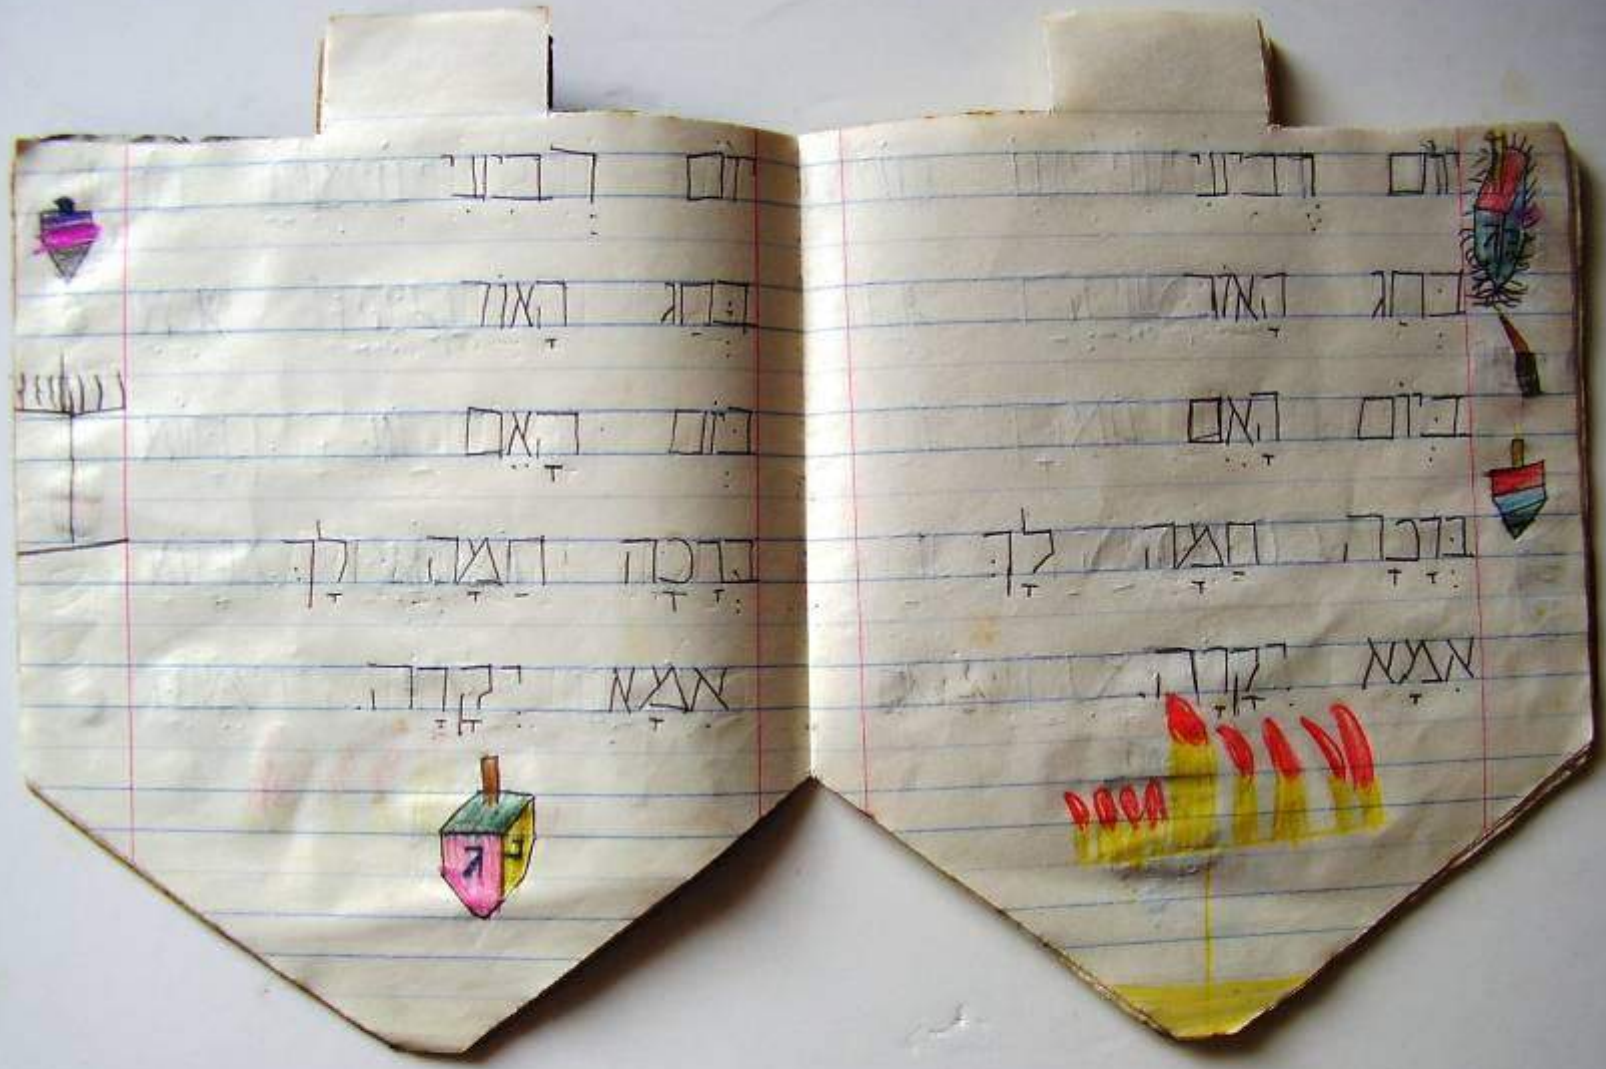 יוֹם רְבִיעִי
בְּחַג הָאוֹר
בְּיוֹם הָאֵם
בְּרָכָה חַמָה לָךְ
אִמָא יְקָרָה.
יוֹם רְבִיעִי
בְּחַג הָאוֹר
בְּיוֹם הָאֵם
בְּרָכָה חַמָה לָךְ
אִמָא יְקָרָה.
נ ג